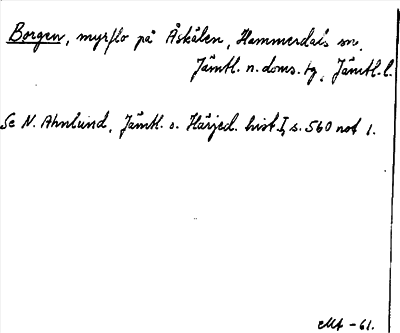 Borgen, myrflo på Åskälen, Hammerdals sn,
Jämtl. n. doms. tg, Jämtl. l.
Se N. Ahnlund, Jämtl. o. Härjed. hist. I, s. 560 not 1.
-61.